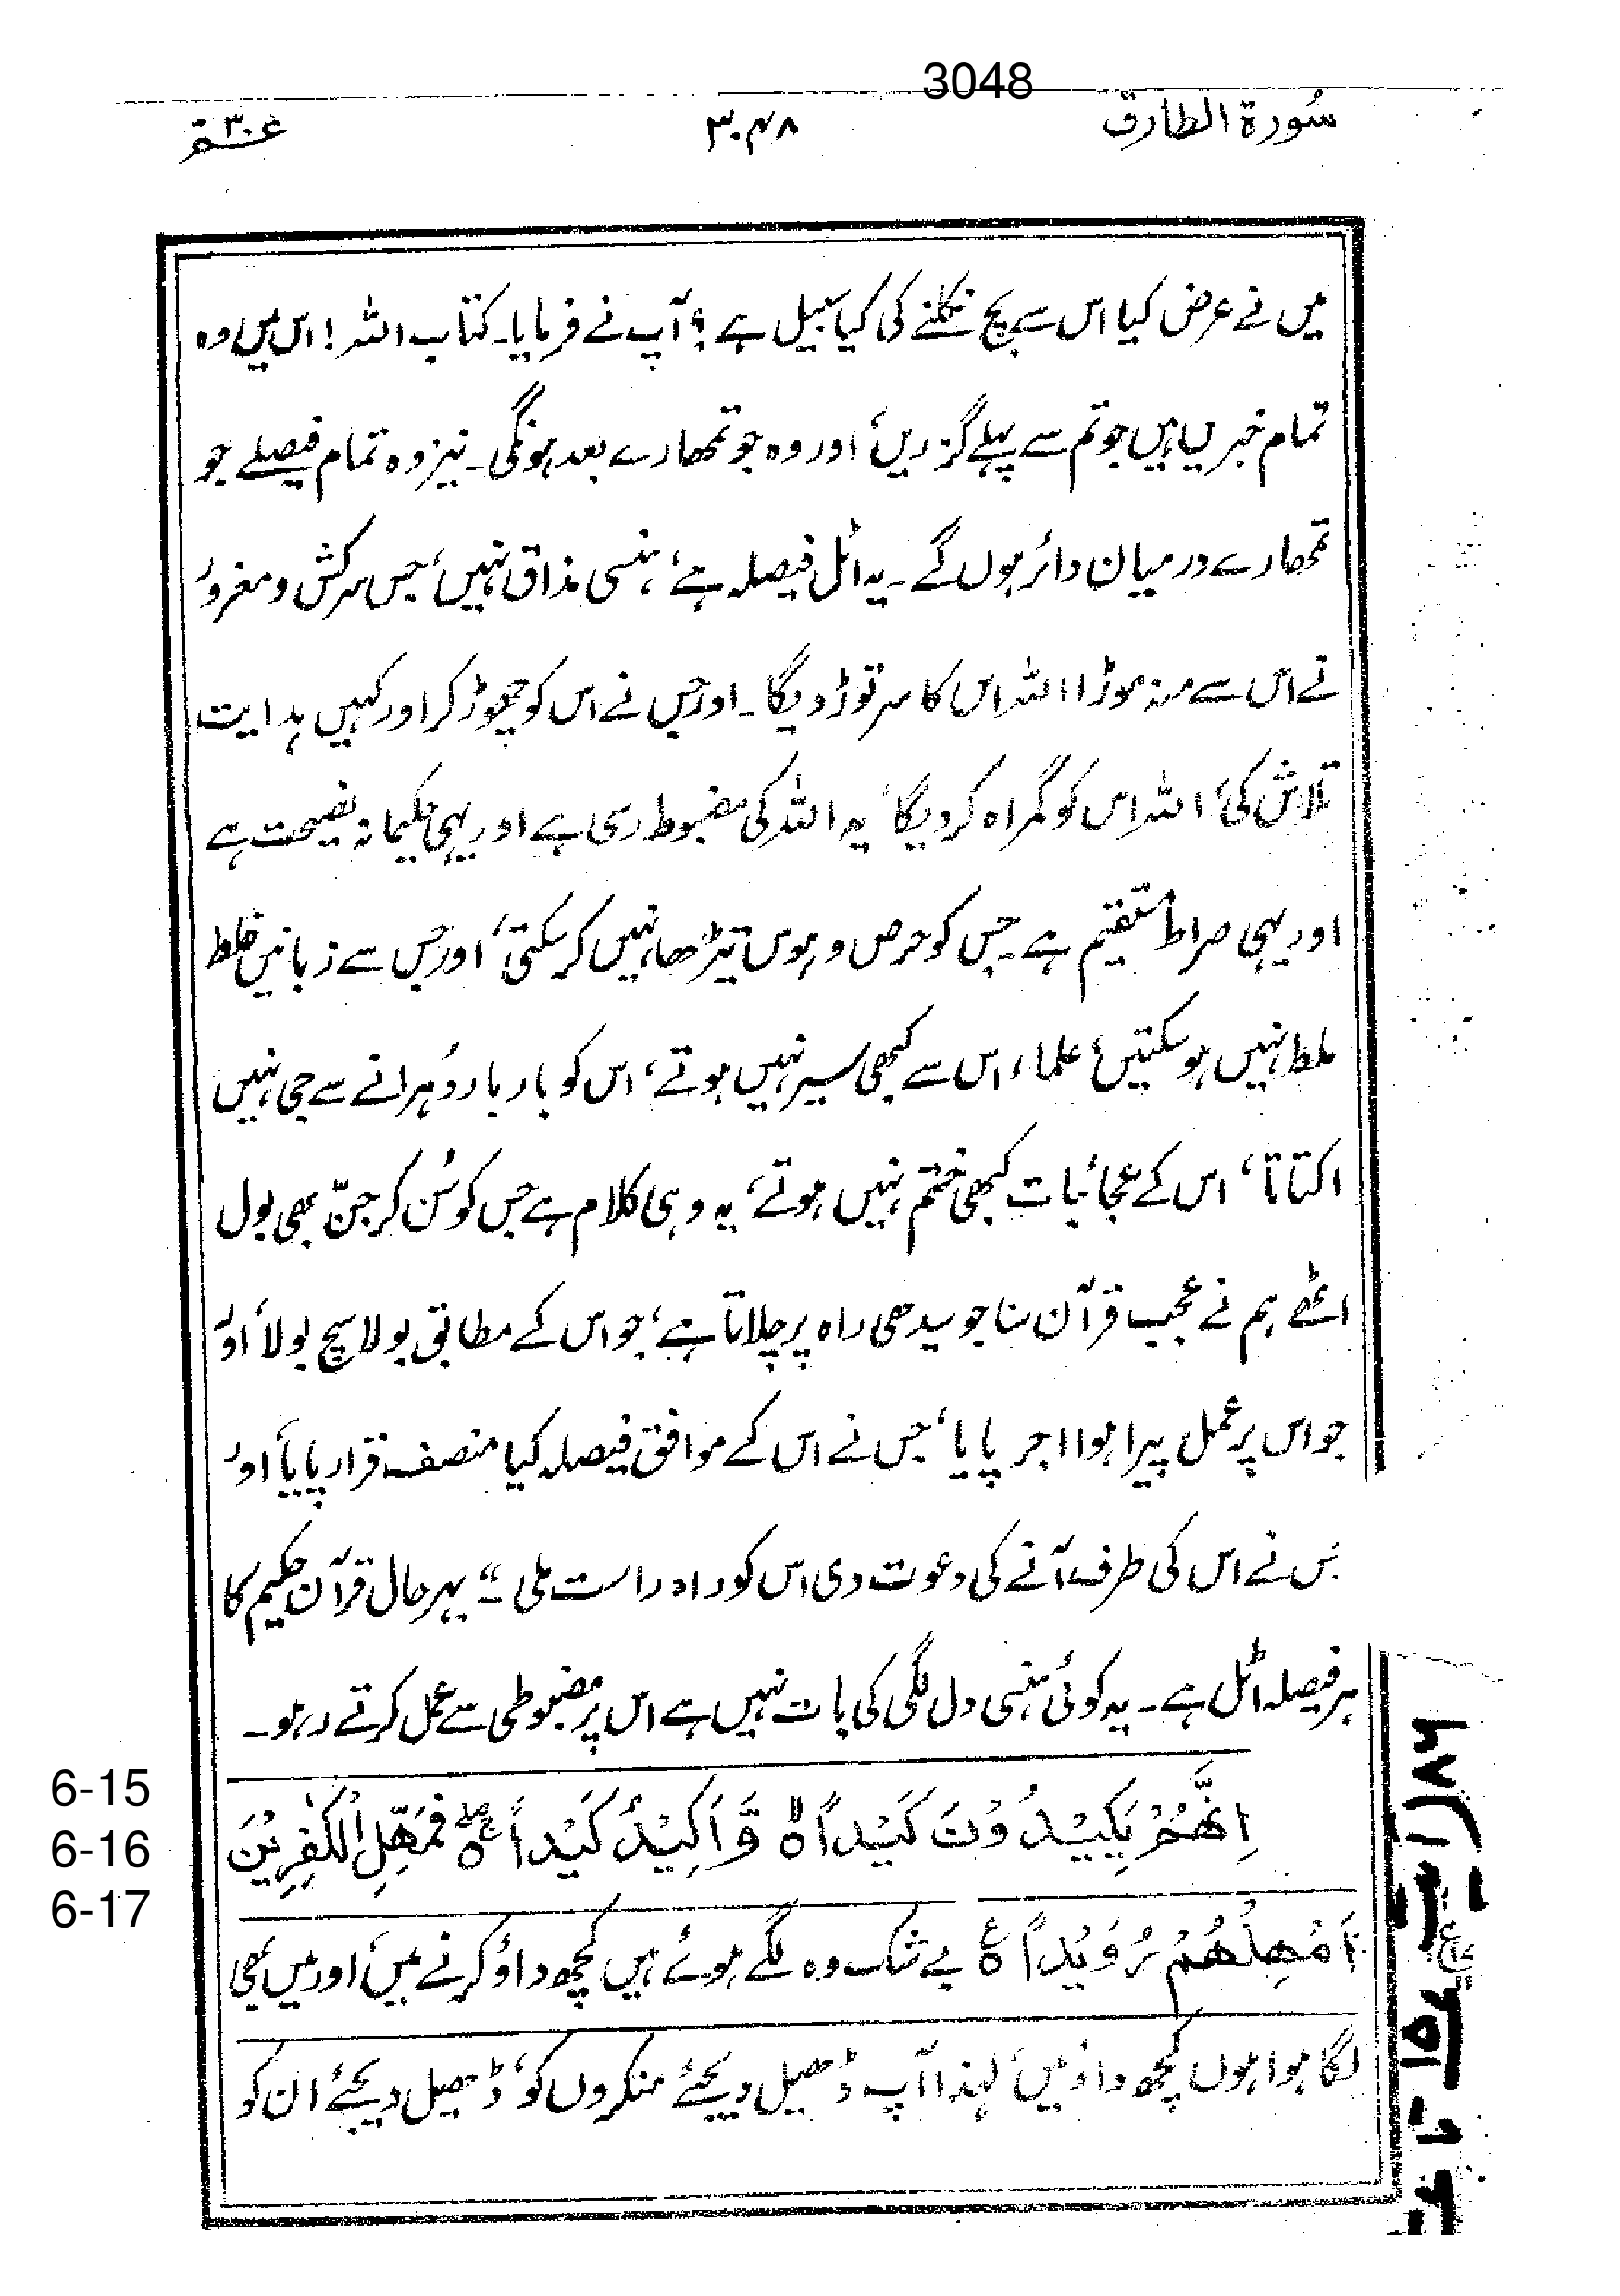 3048
سُورۃ الطارق ۳۰۴۸ عمّ ۳۰
میں نے عرض کیا اس سے بچ نکلنے کی کیا سبیل ہے ؟ آپ نے فرمایا۔ کتاب اللہ ! اس میں وہ
تمام خبریں ہیں جو تم سے پہلے گزریں، اور وہ جو تمھارے بعد ہونگی۔ نیز وہ تمام فیصلے جو
تمھارے درمیان دائر ہوں گے۔ یہ اٹل فیصلہ ہے، ہنسی مذاق نہیں، جس سرکش و مغرور
نے اس سے منہ موڑا اللہ اس کا سر توڑ دیگا۔ اور جس نے اس کو چھوڑ کر اور کہیں ہدایت
تلاش کی، اللہ اس کو گمراہ کر دیگا، یہ اللہ کی مضبوط رسی ہے اور یہی حکیمانہ نصیحت ہے
اور یہی صراط مستقیم ہے۔ جس کو حرص و ہوس ٹیڑھا نہیں کر سکتی، اور جس سے زبانیں خلط
ملط نہیں ہو سکتیں، علماء اس سے کبھی سیر نہیں ہوتے، اس کو بار بار دُہرانے سے جی نہیں
اکتاتا، اس کے عجائبات کبھی ختم نہیں ہوتے، یہ وہی کلام ہے جس کو سُن کر جنّ بھی بول
اٹھے ہم نے عجیب قرآن سنا جو سیدھی راہ پر چلاتا ہے، جو اس کے مطابق بولا سچ بولا، اور
جو اس پر عمل پیرا ہوا اجر پایا، جس نے اس کے موافق فیصلہ کیا منصف قرار پایا، اور
جس نے اس کی طرف آنے کی دعوت دی اس کو راہ راست ملی ۔" بہرحال قرآن حکیم کا
ہر فیصلہ اٹل ہے۔ یہ کوئی ہنسی دل لگی کی بات نہیں ہے اس پر مضبوطی سے عمل کرتے رہو۔
6-15
اِنَّهُمْ يَكِيْدُوْنَ كَيْدًا ۙ وَّاَكِيْدُ كَيْدًا ۚ فَمَهِّلِ الْكٰفِرِيْنَ
6-16
6-17
اَمْهِلْهُمْ رُوَيْدًا ع بے شک وہ لگے ہوئے ہیں کچھ داؤ کرنے میں، اور میں بھی
لگا ہوا ہوں کچھ داؤ میں، لہذا آپ ڈھیل دیجئے منکروں کو، ڈھیل دیجئے ان کو